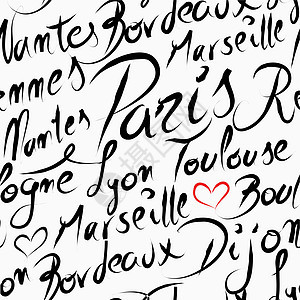 Nantes Bordeaux
Marseille
ennes Paris Re
Nantes
logne Lyon Toulouse
Marseille Boul
on Bordeaux Dijon